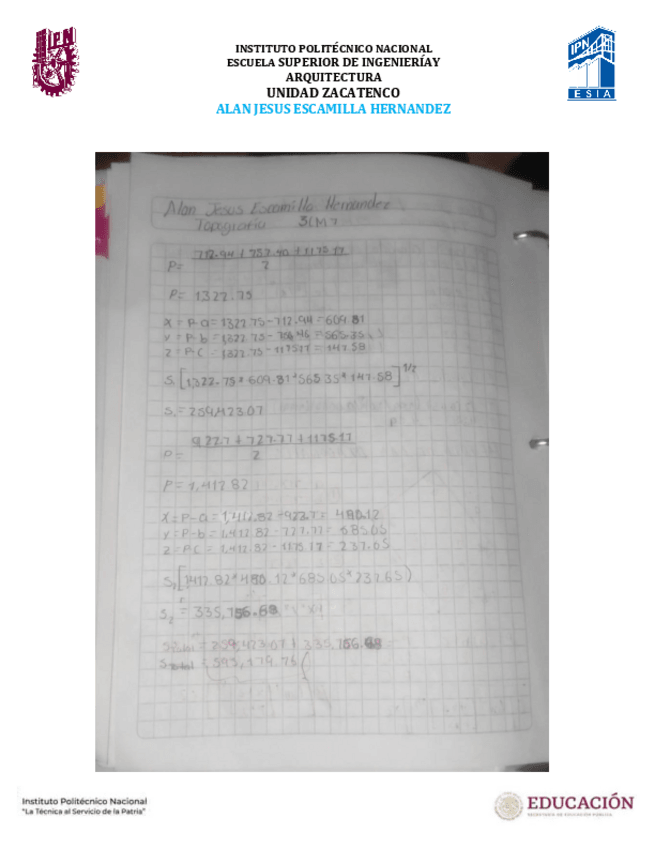 IPN
INSTITUTO POLITÉCNICO NACIONAL
ESCUELA SUPERIOR DE INGENIERÍAY
ARQUITECTURA
UNIDAD ZACATENCO
ALAN JESUS ESCAMILLA HERNANDEZ
IPN
ESIA
Alan Jesus Escamilla Hernandez
Topografia
P= 712.94 + 757.40 + 1175.17
2
P= 1,322.75
X = P-a = 1322.75 - 712.94 = 609.81
Y = P-b = 1,322.75 - = 565.35
Z = P-C = 1,322.75 - 1175.17 = 147.58
S1 [1,322.75*609.81*565.35*147.58]^1/2
S1 = 259,423.07
P= 922.7 + 727.77 + 1175.17
2
P = 1,412.82
X = P-a = 1,412.82 - 922.7 = 480.12
Y = P-b = 1,412.82 - 727.77 = 685.05
Z = P-C = 1,412.82 - 1175.17 = 237.65
S2 [1412.82*480.12*685.05*237.65)
S2 = 335,756.69
= 259,423.07 + 335,756.69
Stotal = 595,179.76
Instituto Politécnico Nacional
"La Técnica al Servicio de la Patria"
EDUCACIÓN
SECRETARÍA DE EDUCACIÓN PÚBLICA